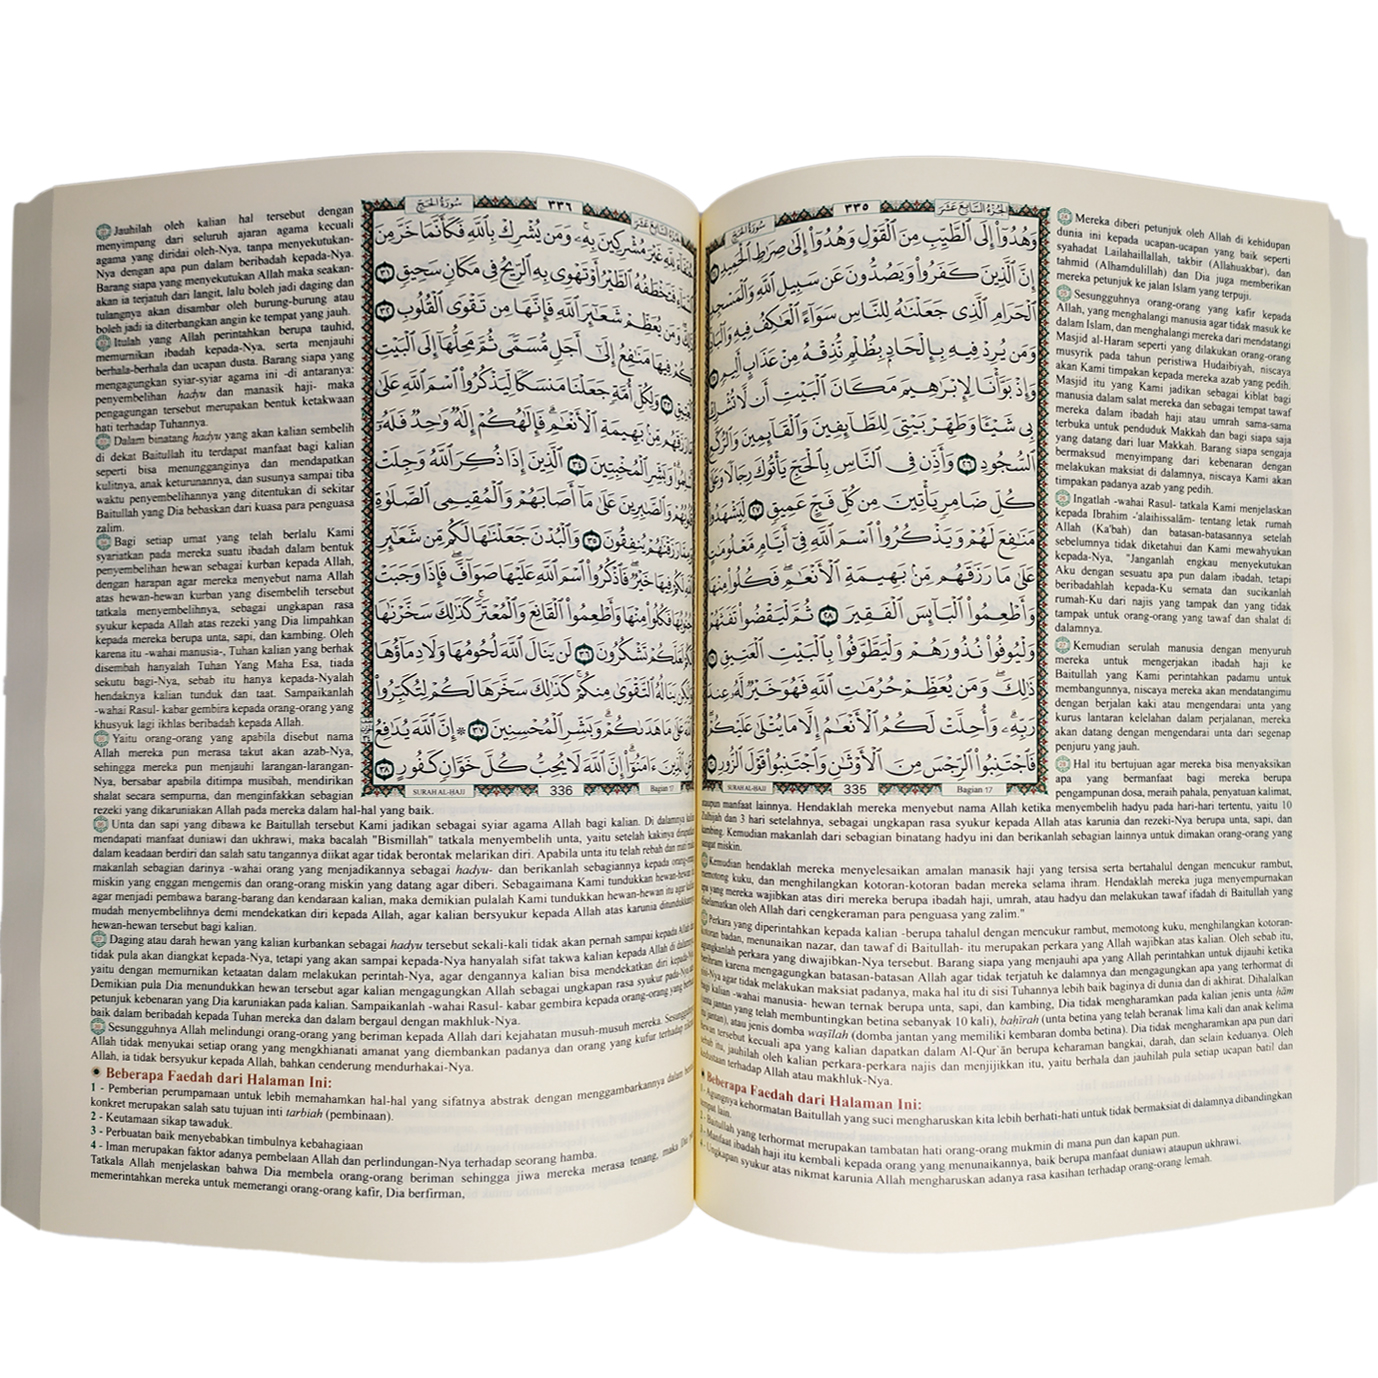 الجزء السابع عشر
٣٣٥
سورة الحج
وَهُدُوٓا۟ إِلَى ٱلطَّيِّبِ مِنَ ٱلْقَوْلِ وَهُدُوٓا۟ إِلَىٰ صِرَٰطِ ٱلْحَمِيدِ
إِنَّ ٱلَّذِينَ كَفَرُوا۟ وَيَصُدُّونَ عَن سَبِيلِ ٱللَّهِ وَٱلْمَسْجِدِ
ٱلْحَرَامِ ٱلَّذِى جَعَلْنَٰهُ لِلنَّاسِ سَوَآءً ٱلْعَٰكِفُ فِيهِ
وَمَن يُرِدْ فِيهِ بِإِلْحَادٍۭ بِظُلْمٍ نُّذِقْهُ مِنْ عَذَابٍ أَلِيمٍ
وَإِذْ بَوَّأْنَا لِإِبْرَٰهِيمَ مَكَانَ ٱلْبَيْتِ أَن لَّا تُشْرِكْ
بِى شَيْـًٔا وَطَهِّرْ بَيْتِىَ لِلطَّآئِفِينَ وَٱلْقَآئِمِينَ وَٱلرُّكَّعِ
ٱلسُّجُودِ ٢٦ وَأَذِّن فِى ٱلنَّاسِ بِٱلْحَجِّ يَأْتُوكَ رِجَالًا وَعَلَىٰ
كُلِّ ضَامِرٍ يَأْتِينَ مِن كُلِّ فَجٍّ عَمِيقٍ ٢٧ لِّيَشْهَدُوا۟
مَنَٰفِعَ لَهُمْ وَيَذْكُرُوا۟ ٱسْمَ ٱللَّهِ فِىٓ أَيَّامٍ مَّعْلُومَٰتٍ
عَلَىٰ مَا رَزَقَهُم مِّنۢ بَهِيمَةِ ٱلْأَنْعَٰمِ ۖ فَكُلُوا۟ مِنْهَا
وَأَطْعِمُوا۟ ٱلْبَآئِسَ ٱلْفَقِيرَ ٢٨ ثُمَّ لْيَقْضُوا۟ تَفَثَهُمْ
وَلْيُوفُوا۟ نُذُورَهُمْ وَلْيَطَّوَّفُوا۟ بِٱلْبَيْتِ ٱلْعَتِيقِ
ذَٰلِكَ ۖ وَمَن يُعَظِّمْ حُرُمَٰتِ ٱللَّهِ فَهُوَ خَيْرٌ لَّهُۥ عِندَ
رَبِّهِۦ ۗ وَأُحِلَّتْ لَكُمُ ٱلْأَنْعَٰمُ إِلَّا مَا يُتْلَىٰ عَلَيْكُمْ ۖ
فَٱجْتَنِبُوا۟ ٱلرِّجْسَ مِنَ ٱلْأَوْثَٰنِ وَٱجْتَنِبُوا۟ قَوْلَ ٱلزُّورِ
SURAH AL-HAJJ 335 Bagian 17
Mereka diberi petunjuk oleh Allah di kehidupan
dunia ini kepada ucapan-ucapan yang baik seperti
syahadat Lailahaillallah, takbir (Allahuakbar), dan
tahmid (Alhamdulillah) dan Dia juga memberikan
mereka petunjuk ke jalan Islam yang terpuji.
Sesungguhnya orang-orang yang kafir kepada
Allah, yang menghalangi manusia agar tidak masuk ke
dalam Islam, dan menghalangi mereka dari mendatangi
Masjid al-Haram seperti yang dilakukan orang-orang
musyrik pada tahun peristiwa Hudaibiyah, niscaya
akan Kami timpakan kepada mereka azab yang pedih.
Masjid itu yang Kami jadikan sebagai kiblat bagi
manusia dalam salat mereka dan sebagai tempat tawaf
mereka dalam ibadah haji atau umrah sama-sama
terbuka untuk penduduk Makkah dan bagi siapa saja
yang datang dari luar Makkah. Barang siapa sengaja
bermaksud menyimpang dari kebenaran dengan
melakukan maksiat di dalamnya, niscaya Kami akan
timpakan padanya azab yang pedih.
Ingatlah -wahai Rasul- tatkala Kami menjelaskan
kepada Ibrahim -'alaihissalām- tentang letak rumah
Allah (Ka'bah) dan batasan-batasannya setelah
sebelumnya tidak diketahui dan Kami mewahyukan
kepada-Nya, "Janganlah engkau menyekutukan
Aku dengan sesuatu apa pun dalam ibadah, tetapi
beribadahlah kepada-Ku semata dan sucikanlah
rumah-Ku dari najis yang tampak dan yang tidak
tampak untuk orang-orang yang tawaf dan shalat di
dalamnya.
Kemudian serulah manusia dengan menyuruh
mereka untuk mengerjakan ibadah haji ke
Baitullah yang Kami perintahkan padamu untuk
membangunnya, niscaya mereka akan mendatangimu
dengan berjalan kaki atau mengendarai unta yang
kurus lantaran kelelahan dalam perjalanan, mereka
akan datang dengan mengendarai unta dari segenap
penjuru yang jauh.
Hal itu bertujuan agar mereka bisa menyaksikan
apa yang bermanfaat bagi mereka berupa
pengampunan dosa, meraih pahala, penyatuan kalimat,
ataupun manfaat lainnya. Hendaklah mereka menyebut nama Allah ketika menyembelih hadyu pada hari-hari tertentu, yaitu 10
Zulhijah dan 3 hari setelahnya, sebagai ungkapan rasa syukur kepada Allah atas karunia dan rezeki-Nya berupa unta, sapi, dan
kambing. Kemudian makanlah dari sebagian binatang hadyu ini dan berikanlah sebagian lainnya untuk dimakan orang-orang yang
sangat miskin.
Kemudian hendaklah mereka menyelesaikan amalan manasik haji yang tersisa serta bertahalul dengan mencukur rambut,
memotong kuku, dan menghilangkan kotoran-kotoran badan mereka selama ihram. Hendaklah mereka juga menyempurnakan
apa yang mereka wajibkan atas diri mereka berupa ibadah haji, umrah, atau hadyu dan melakukan tawaf ifadah di Baitullah yang
diselamatkan oleh Allah dari cengkeraman para penguasa yang zalim."
Perkara yang diperintahkan kepada kalian -berupa tahalul dengan mencukur rambut, memotong kuku, menghilangkan kotoran-
kotoran badan, menunaikan nazar, dan tawaf di Baitullah- itu merupakan perkara yang Allah wajibkan atas kalian. Oleh sebab itu,
agungkanlah perkara yang diwajibkan-Nya tersebut. Barang siapa yang menjauhi apa yang Allah perintahkan untuk dijauhi ketika
berihram karena mengagungkan batasan-batasan Allah agar tidak terjatuh ke dalamnya dan mengagungkan apa yang terhormat di
sisi-Nya agar tidak melakukan maksiat padanya, maka hal itu di sisi Tuhannya lebih baik baginya di dunia dan di akhirat. Dihalalkan
bagi kalian -wahai manusia- hewan ternak berupa unta, sapi, dan kambing, Dia tidak mengharamkan pada kalian jenis unta hām
(unta jantan yang telah membuntingkan betina sebanyak 10 kali), bahīrah (unta betina yang telah beranak lima kali dan anak kelima
itu jantan), atau jenis domba waṣīlah (domba jantan yang memiliki kembaran domba betina). Dia tidak mengharamkan apa pun dari
hewan tersebut kecuali apa yang kalian dapatkan dalam Al-Qur`ān berupa keharaman bangkai, darah, dan selain keduanya. Oleh
sebab itu, jauhilah oleh kalian perkara-perkara najis dan menjijikkan itu, yaitu berhala dan jauhilah pula setiap ucapan batil dan
kedustaan terhadap Allah atau makhluk-Nya.
Beberapa Faedah dari Halaman Ini:
1 - Agungnya kehormatan Baitullah yang suci mengharuskan kita lebih berhati-hati untuk tidak bermaksiat di dalamnya dibandingkan
tempat lain.
2 - Baitullah yang terhormat merupakan tambatan hati orang-orang mukmin di mana pun dan kapan pun.
3 - Manfaat ibadah haji itu kembali kepada orang yang menunaikannya, baik berupa manfaat duniawi ataupun ukhrawi.
4 - Ungkapan syukur atas nikmat karunia Allah mengharuskan adanya rasa kasihan terhadap orang-orang lemah.
الجزء السابع عشر
٣٣٦
سورة الحج
حُنَفَآءَ لِلَّهِ غَيْرَ مُشْرِكِينَ بِهِۦ ۚ وَمَن يُشْرِكْ بِٱللَّهِ فَكَأَنَّمَا خَرَّ مِنَ
ٱلسَّمَآءِ فَتَخْطَفُهُ ٱلطَّيْرُ أَوْ تَهْوِى بِهِ ٱلرِّيحُ فِى مَكَانٍ سَحِيقٍ ٣١
ذَٰلِكَ وَمَن يُعَظِّمْ شَعَٰٓئِرَ ٱللَّهِ فَإِنَّهَا مِن تَقْوَى ٱلْقُلُوبِ ٣٢
لَكُمْ فِيهَا مَنَٰفِعُ إِلَىٰٓ أَجَلٍ مُّسَمًّى ثُمَّ مَحِلُّهَآ إِلَى ٱلْبَيْتِ
ٱلْعَتِيقِ ٣٣ وَلِكُلِّ أُمَّةٍ جَعَلْنَا مَنسَكًا لِّيَذْكُرُوا۟ ٱسْمَ ٱللَّهِ عَلَىٰ
مَا رَزَقَهُم مِّنۢ بَهِيمَةِ ٱلْأَنْعَٰمِ ۗ فَإِلَٰهُكُمْ إِلَٰهٌ وَٰحِدٌ فَلَهُۥٓ
أَسْلِمُوا۟ ۗ وَبَشِّرِ ٱلْمُخْبِتِينَ ٣٤ ٱلَّذِينَ إِذَا ذُكِرَ ٱللَّهُ وَجِلَتْ
قُلُوبُهُمْ وَٱلصَّٰبِرِينَ عَلَىٰ مَآ أَصَابَهُمْ وَٱلْمُقِيمِى ٱلصَّلَوٰةِ
وَمِمَّا رَزَقْنَٰهُمْ يُنفِقُونَ ٣٥ وَٱلْبُدْنَ جَعَلْنَٰهَا لَكُم مِّن شَعَٰٓئِرِ
ٱللَّهِ لَكُمْ فِيهَا خَيْرٌ ۖ فَٱذْكُرُوا۟ ٱسْمَ ٱللَّهِ عَلَيْهَا صَوَآفَّ ۖ فَإِذَا وَجَبَتْ
جُنُوبُهَا فَكُلُوا۟ مِنْهَا وَأَطْعِمُوا۟ ٱلْقَانِعَ وَٱلْمُعْتَرَّ ۚ كَذَٰلِكَ سَخَّرْنَٰهَا
لَكُمْ لَعَلَّكُمْ تَشْكُرُونَ ٣٦ لَن يَنَالَ ٱللَّهَ لُحُومُهَا وَلَا دِمَآؤُهَا
وَلَٰكِن يَنَالُهُ ٱلتَّقْوَىٰ مِنكُمْ ۚ كَذَٰلِكَ سَخَّرَهَا لَكُمْ لِتُكَبِّرُوا۟
ٱللَّهَ عَلَىٰ مَا هَدَىٰكُمْ ۗ وَبَشِّرِ ٱلْمُحْسِنِينَ ٣٧ ۞ إِنَّ ٱللَّهَ يُدَٰفِعُ
عَنِ ٱلَّذِينَ ءَامَنُوٓا۟ ۗ إِنَّ ٱللَّهَ لَا يُحِبُّ كُلَّ خَوَّانٍ كَفُورٍ ٣٨
SURAH AL-HAJJ 336 Bagian 17
Jauhilah oleh kalian hal tersebut dengan
menyimpang dari seluruh ajaran agama kecuali
agama yang diridai oleh-Nya, tanpa menyekutukan-
Nya dengan apa pun dalam beribadah kepada-Nya.
Barang siapa yang menyekutukan Allah maka seakan-
akan ia terjatuh dari langit, lalu boleh jadi daging dan
tulangnya akan disambar oleh burung-burung atau
boleh jadi ia diterbangkan angin ke tempat yang jauh.
Itulah yang Allah perintahkan berupa tauhid,
memurnikan ibadah kepada-Nya, serta menjauhi
berhala-berhala dan ucapan dusta. Barang siapa yang
mengagungkan syiar-syiar agama ini -di antaranya:
penyembelihan hadyu dan manasik haji- maka
pengagungan tersebut merupakan bentuk ketakwaan
hati terhadap Tuhannya.
Dalam binatang hadyu yang akan kalian sembelih
di dekat Baitullah itu terdapat manfaat bagi kalian
seperti bisa menungganginya dan mendapatkan
kulitnya, anak keturunannya, dan susunya sampai tiba
waktu penyembelihannya yang ditentukan di sekitar
Baitullah yang Dia bebaskan dari kuasa para penguasa
zalim.
Bagi setiap umat yang telah berlalu Kami
syariatkan pada mereka suatu ibadah dalam bentuk
penyembelihan hewan sebagai kurban kepada Allah,
dengan harapan agar mereka menyebut nama Allah
atas hewan-hewan kurban yang disembelih tersebut
tatkala menyembelihnya, sebagai ungkapan rasa
syukur kepada Allah atas rezeki yang Dia limpahkan
kepada mereka berupa unta, sapi, dan kambing. Oleh
karena itu -wahai manusia-, Tuhan kalian yang berhak
disembah hanyalah Tuhan Yang Maha Esa, tiada
sekutu bagi-Nya, sebab itu hanya kepada-Nyalah
hendaknya kalian tunduk dan taat. Sampaikanlah
-wahai Rasul- kabar gembira kepada orang-orang yang
khusyuk lagi ikhlas beribadah kepada Allah.
Yaitu orang-orang yang apabila disebut nama
Allah mereka pun merasa takut akan azab-Nya,
sehingga mereka pun menjauhi larangan-larangan-
Nya, bersabar apabila ditimpa musibah, mendirikan
shalat secara sempurna, dan menginfakkan sebagian
rezeki yang dikaruniakan Allah pada mereka dalam hal-hal yang baik.
Unta dan sapi yang dibawa ke Baitullah tersebut Kami jadikan sebagai syiar agama Allah bagi kalian. Di dalamnya kalian
mendapati manfaat duniawi dan ukhrawi, maka bacalah "Bismillah" tatkala menyembelih unta, yaitu setelah kakinya dirapatkan
dalam keadaan berdiri dan salah satu tangannya diikat agar tidak berontak melarikan diri. Apabila unta itu telah rebah dan mati maka
makanlah sebagian darinya -wahai orang yang menjadikannya sebagai hadyu- dan berikanlah sebagiannya kepada orang-orang
miskin yang enggan mengemis dan orang-orang miskin yang datang agar diberi. Sebagaimana Kami tundukkan hewan-hewan
agar menjadi pembawa barang-barang dan kendaraan kalian, maka demikian pulalah Kami tundukkan hewan-hewan itu agar kalian
mudah menyembelihnya demi mendekatkan diri kepada Allah, agar kalian bersyukur kepada Allah atas karunia ditundukkannya
hewan-hewan tersebut bagi kalian.
Daging atau darah hewan yang kalian kurbankan sebagai hadyu tersebut sekali-kali tidak akan pernah sampai kepada Allah dan
tidak pula akan diangkat kepada-Nya, tetapi yang akan sampai kepada-Nya hanyalah sifat takwa kalian kepada Allah di dalamnya,
yaitu dengan memurnikan ketaatan dalam melakukan perintah-Nya, agar dengannya kalian bisa mendekatkan diri kepada-Nya.
Demikian pula Dia menundukkan hewan tersebut agar kalian mengagungkan Allah sebagai ungkapan rasa syukur pada-Nya atas
petunjuk kebenaran yang Dia karuniakan pada kalian. Sampaikanlah -wahai Rasul- kabar gembira kepada orang-orang yang berbuat
baik dalam beribadah kepada Tuhan mereka dan dalam bergaul dengan makhluk-Nya.
Sesungguhnya Allah melindungi orang-orang yang beriman kepada Allah dari kejahatan musuh-musuh mereka. Sesungguhnya
Allah tidak menyukai setiap orang yang mengkhianati amanat yang diembankan padanya dan orang yang kufur terhadap nikmat
Allah, ia tidak bersyukur kepada Allah, bahkan cenderung mendurhakai-Nya.
Beberapa Faedah dari Halaman Ini:
1 - Pemberian perumpamaan untuk lebih memahamkan hal-hal yang sifatnya abstrak dengan menggambarkannya dalam
konkret merupakan salah satu tujuan inti tarbiah (pembinaan).
2 - Keutamaan sikap tawaduk.
3 - Perbuatan baik menyebabkan timbulnya kebahagiaan
4 - Iman merupakan faktor adanya pembelaan Allah dan perlindungan-Nya terhadap seorang hamba.
Tatkala Allah menjelaskan bahwa Dia membela orang-orang beriman sehingga jiwa mereka merasa tenang, maka Dia
memerintahkan mereka untuk memerangi orang-orang kafir, Dia berfirman,